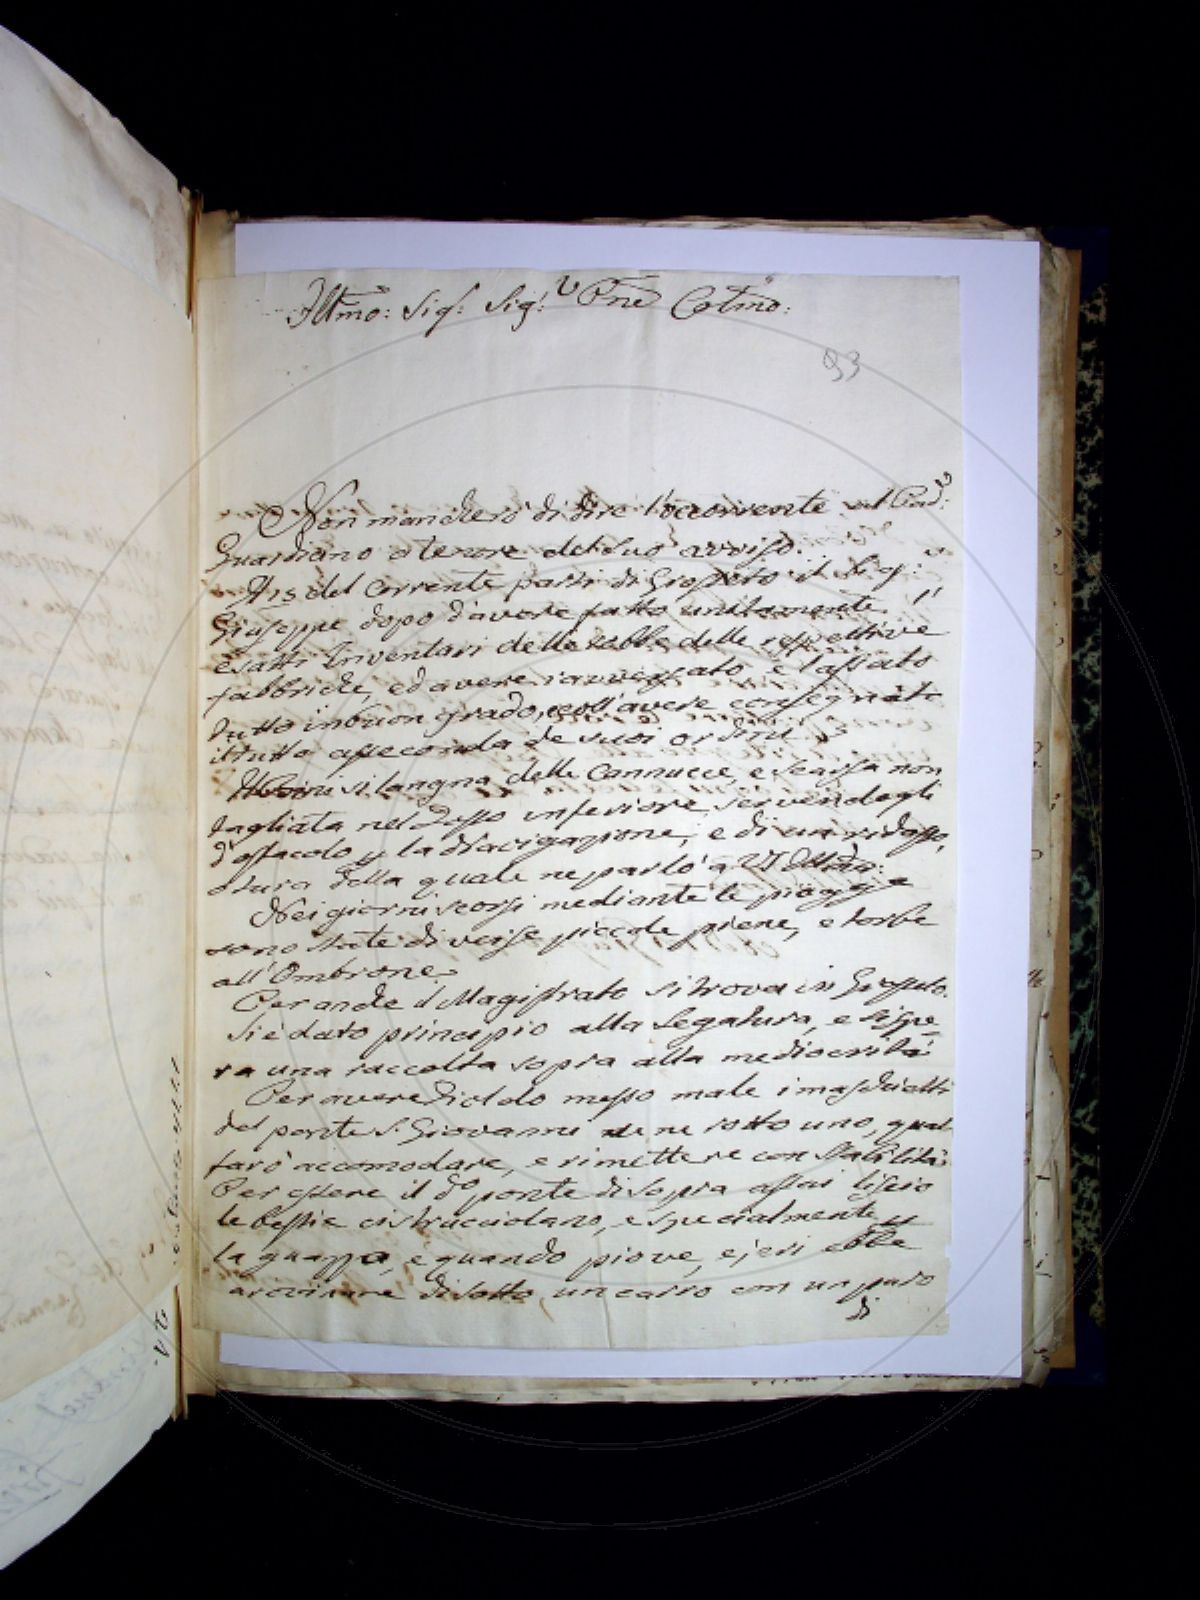 Illmo: Sig: Sig:r Pne Colmo:
93
Non mancherò di dire l'occorrente al Pad:e
Guardiano a tenore del suo avviso.
Al 15 del Corrente partì di Grosseto il Sig:r
Giuseppe dopo d'avere fatto unitamente
esatti Inventari delle robbe delle respettive
fabbriche, ed avere lassato
tutto in buon grado, coll'avere consegnato
il tutto asseconda de suoi ordini
si langna delle Cannucce, e scarsa non
tagliata nel Fosso inferiore, servendogli
d'ostacolo p la Navigazione, e di un ridosso,
della quale ne parlò a VS Illma:
Nei giorni scorsi mediante le piogge
sono state diverse piccole piene, e torbe
all'Ombrone.
Per anche il Magistrato si trova in Grosseto.
Si è dato principio alla Segatura, e si spe-
ra una raccolta sopra alla mediocrità
Per avere messo male i maschietti
del ponte S. Giovanni se ne rotto uno, qual
farò accomodare, e rimettere con stabilità:
Per essere il do ponte di sopra assai liscio
le bestie ci strucciolano, e specialmente p
la guazza, e quando piove, e jeri ebbe
arovinare di sotto, un carro con un paro
di